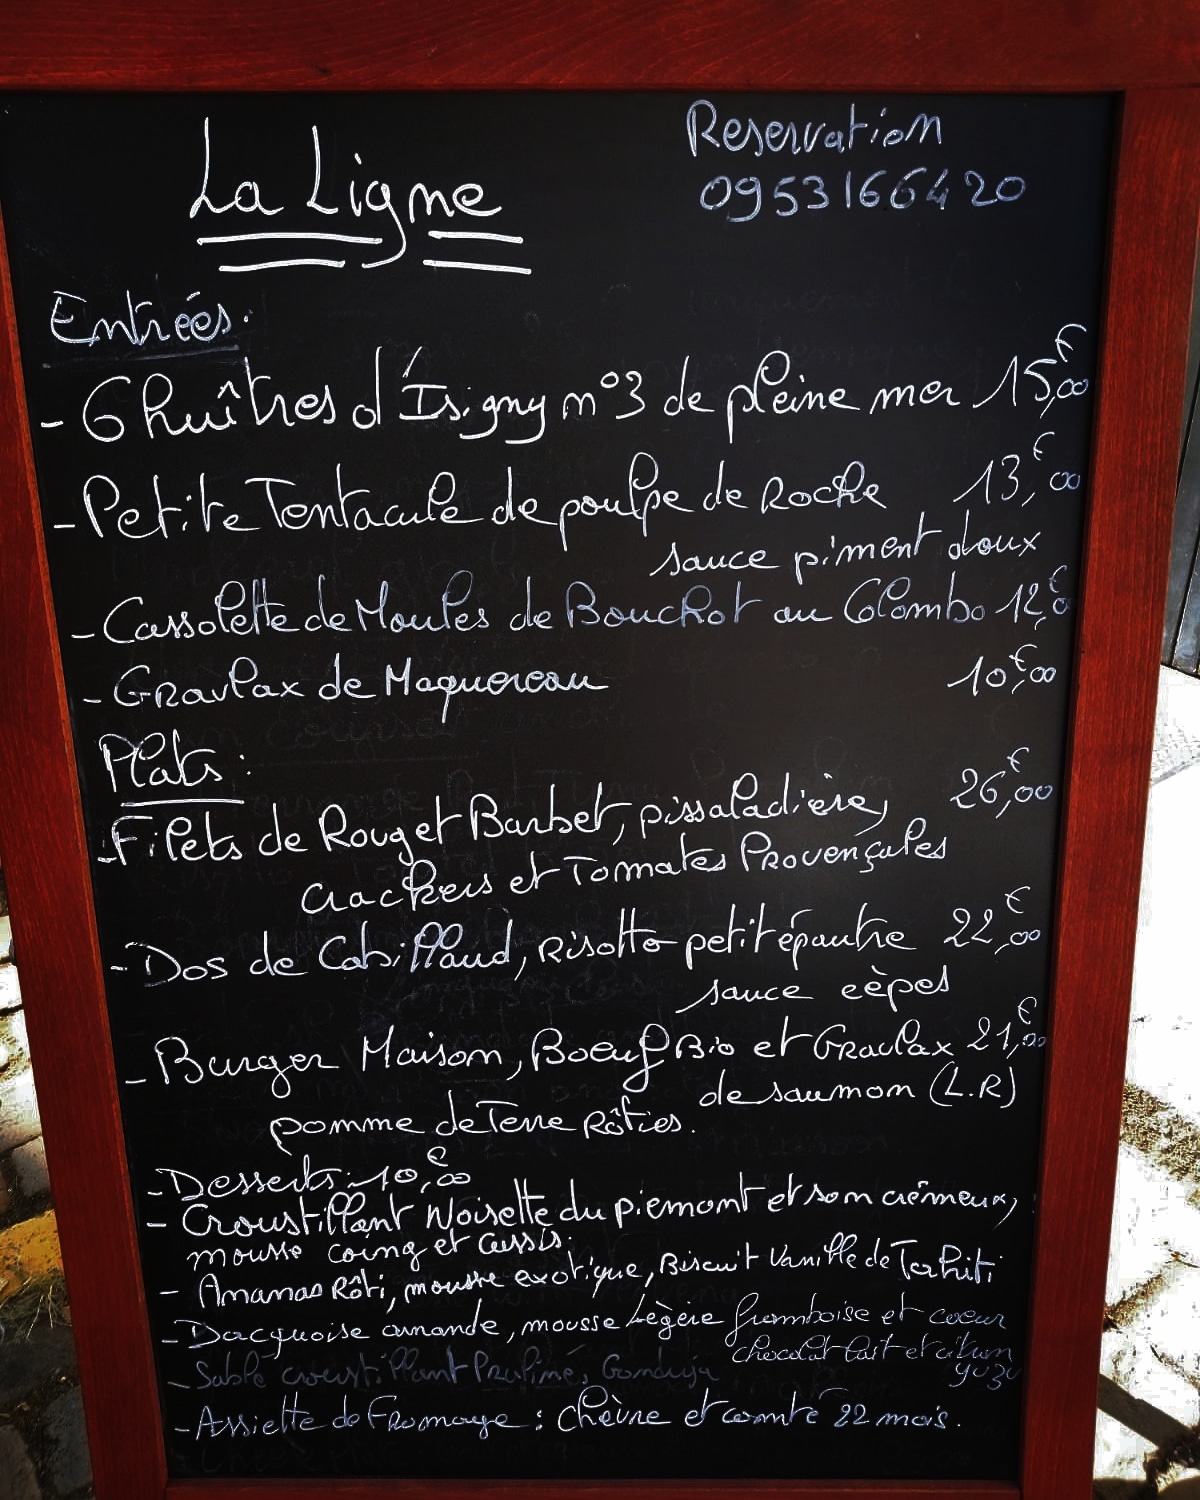 La Ligne
Reservation
0953166420
Entrées.
- 6 huîtres d'Isigny n°3 de pleine mer 15,€00
- Petite Tentacule de poulpe de Roche 13,€00
sauce piment doux
- Cassolette de Moules de Bouchot au Colombo 12,€0
- Gravlax de Maquereau 10,€00
Plats :
- Filets de Rouget Barbet, pissaladière, 26,€00
crackers et Tomates Provençales
- Dos de Cabillaud, Risotto petit épautre 22,€00
sauce cèpes
- Burger Maison, Boeuf Bio et Gravlax 21,€00
de saumon (L.R)
pomme de Terre Rôties.
- Desserts : 10,€00
- Croustillant Noisette du piemont et son crémeux,
mousse coing et cassis.
- Ananas Rôti, mousse exotique, Biscuit Vanille de Tahiti
- Dacquoise amande, mousse Légère framboise et coeur
chocolat lait et citron
yuzu
- Sablé croustillant Praliné, Gianduja
- Assiette de Fromage : Chèvre et comté 22 mois.